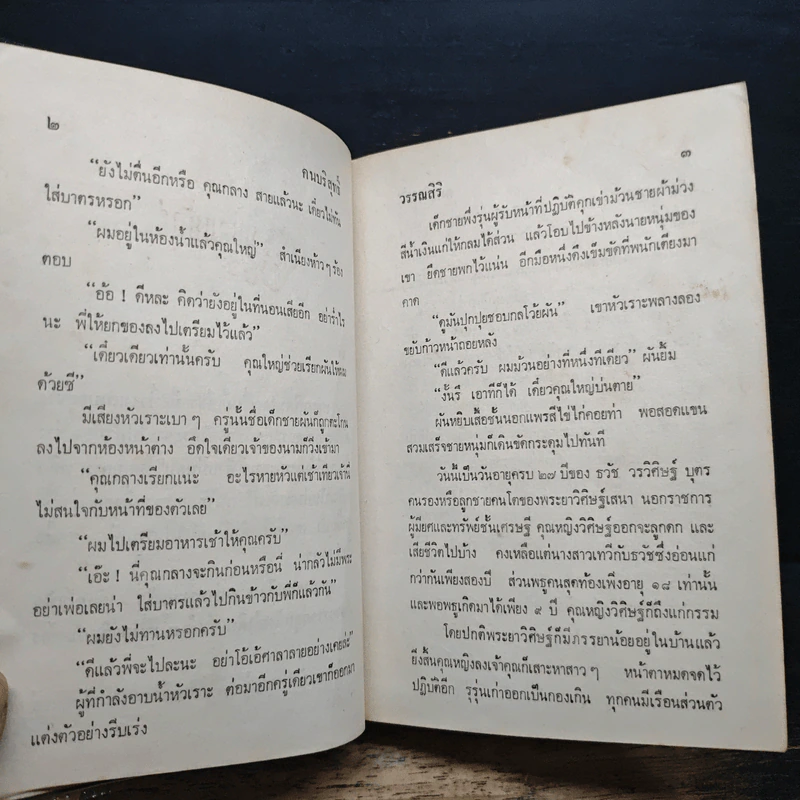 ๒
คนบริสุทธิ์
“ยังไม่ตื่นอีกหรือ คุณกลาง สายแล้วนะ เดี๋ยวไม่ทัน
ใส่บาตรหรอก”
“ผมอยู่ในห้องน้ำแล้วคุณใหญ่” สำเนียงห้าวๆ ร้อง
ตอบ
“อ้อ ! ดีหละ คิดว่ายังอยู่ในที่นอนเสียอีก อย่าร่ำไร
นะ พี่ให้ยกของลงไปเตรียมไว้แล้ว”
“เดี๋ยวเดียวเท่านั้นครับ คุณใหญ่ช่วยเรียกผันให้ผม
ด้วยซี”
มีเสียงหัวเราะเบาๆ ครู่นั้นชื่อเด็กชายผันก็ถูกตะโกน
ลงไปจากห้องหน้าต่าง อึดใจเดียวเจ้าของนามก็วิ่งเข้ามา
“คุณกลางเรียกแน่ะ อะไรหายหัวแต่เช้าเทียวเจ้านี่
ไม่สนใจกับหน้าที่ของตัวเลย”
“ผมไปเตรียมอาหารเช้าให้คุณครับ”
“เอ๊ะ ! นี่คุณกลางจะกินก่อนหรือนี่ น่ากลัวไม่มีพระ
อย่าเพ่อเลยน่า ใส่บาตรแล้วไปกินข้าวกับพี่ก็แล้วกัน”
“ผมยังไม่ทานหรอกครับ”
“ดีแล้วพี่จะไปละนะ อย่าโอ้เอ้ศาลาลายอย่างเคยล่ะ”
ผู้ที่กำลังอาบน้ำหัวเราะ ต่อมาอีกครู่เดียวเขาก็ออกมา
แต่งตัวอย่างรีบเร่ง
วรรณสิริ
๓
เด็กชายพึ่งรุ่นผู้รับหน้าที่ปฏิบัติคุกเข่าม้วนชายผ้าม่วง
สีน้ำเงินแก่ให้กลมได้ส่วน แล้วโอบไปข้างหลังนายหนุ่มของ
เขา ยึดชายพกไว้แน่น อีกมือหนึ่งดึงเข็มขัดที่พนักเตียงมา
คาด
“ดูมันปุกปุยชอบกลโว้ยผัน” เขาหัวเราะพลางลอง
ขยับก้าวหน้าถอยหลัง
“ดีแล้วครับ ผมม้วนอย่างที่หนึ่งทีเดียว” ผันยิ้ม
“งั้นรึ เอาทีก็ได้ เดี๋ยวคุณใหญ่บ่นตาย”
ผันหยิบเสื้อชั้นนอกแพรสีไข่ไก่คอยท่า พอสอดแขน
สวมเสร็จชายหนุ่มก็เดินขัดกระดุมไปทันที
วันนี้เป็นวันอายุครบ ๒๗ ปีของ ธวัช วรวิศิษฐ์ บุตร
คนรองหรือลูกชายคนโตของพระยาวิศิษฐ์เสนา นอกราชการ
ผู้มียศและทรัพย์ชั้นเศรษฐี คุณหญิงวิศิษฐ์ออกจะลูกดก และ
เสียชีวิตไปบ้าง คงเหลือแต่นางสาวเทวีกับธวัชซึ่งอ่อนแก่
กว่ากันเพียงสองปี ส่วนพธูคนสุดท้องเพิ่งอายุ ๑๘ เท่านั้น
และพอพธูเกิดมาได้เพียง ๙ ปี คุณหญิงวิศิษฐ์ก็ถึงแก่กรรม
โดยปกติพระยาวิศิษฐ์ก็มีภรรยาน้อยอยู่ในบ้านแล้ว
ยิ่งสิ้นคุณหญิงลงเจ้าคุณก็เสาะหาสาวๆ หน้าตาหมดจดไว้
ปฏิบัติอีก รุรุ่นเก่าออกเป็นกองเกิน ทุกคนมีเรือนส่วนตัว